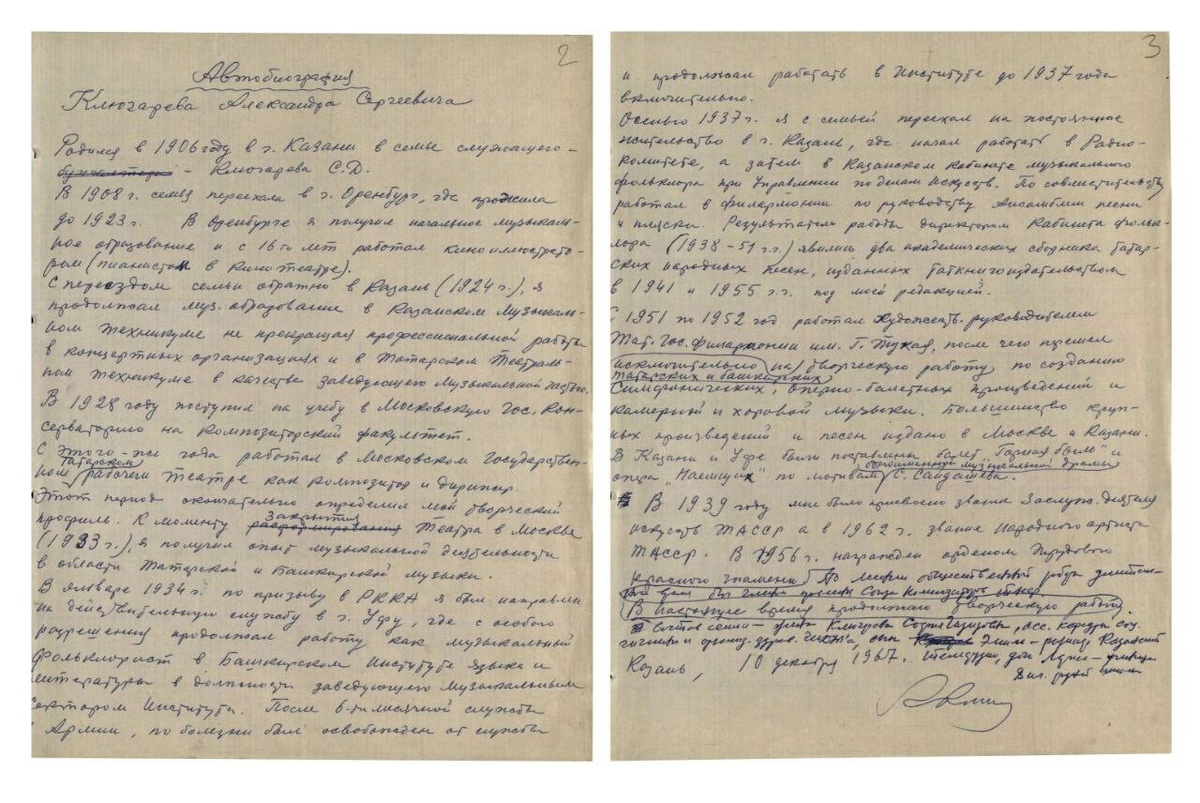 2
Автобиография
Ключарева Александра Сергеевича
Родился в 1906 году в г. Казани в семье служащего –
– Ключарева С.Д.
В 1908 г. семья переехала в г. Оренбург, где прожила
до 1923 г. В Оренбурге я получил начальное музыкаль-
ное образование и с 16ти лет работал киноиллюстрато-
ром (пианистом в кинотеатре).
С переездом семьи обратно в Казань (1924 г.), я
продолжал муз. образование в Казанском Музыкаль-
ном техникуме не прекращая профессиональной работы
в концертных организациях и в Татарском Театраль-
ном техникуме в качестве заведующего музыкальной частью.
В 1928 году поступил на учебу в Московскую Гос. Кон-
серваторию на композиторский факультет.
С этого-же года работал в Московском Государствен-
Татарском
ном рабочем театре как композитор и дирижер.
Этот период окончательно определил мой творческий
закрытия
профиль. К моменту расформирования театра в Москве
(1933 г.), я получил опыт музыкальной деятельности
в области татарской и башкирской музыки.
В январе 1934 г. по призыву в РККА я был направлен
на действительную службу в г. Уфу, где с особого
разрешения продолжал работу как музыкальный
фольклорист в Башкирском Институте языка и
литературы в должности заведующего музыкальным
сектором Института. После 6-тимесячной службы
в Армии, по болезни был освобожден от службы
3
и продолжал работать в Институте до 1937 года
включительно.
Осенью 1937 г. я с семьей переехал на постоянное
жительство в г. Казань, где начал работать в Радио-
комитете, а затем в Казанском Кабинете музыкального
фольклора при Управлении по делам Искусств. По совместительству
работал в филармонии по руководству Ансамблем песни
и пляски. Результатом работы директором Кабинета фольк-
лора (1938-51 г.г.) явились два академических сборника татар-
ских народных песен, изданных Таткнигоиздательством
в 1941 и 1955 г.г. под моей редакцией.
С 1951 по 1952 год работал художеств. руководителем
Тат. Гос. филармонии им. Г. Тукая, после чего перешел
исключительно на творческую работу по созданию
татарских и башкирских
симфонических, оперно-балетных произведений и
камерной и хоровой музыки. Большинство круп-
ных произведений и песен издано в Москве и Казани.
В Казани и Уфе были поставлены балет "Горная быль" и
одноименной музыкальной драмы
опера "Наемщик" по мотивам С. Сайдашева.
В 1939 году мне было присвоено звание Заслуж. деятеля
искусств ТАССР а в 1962 г. звание Народного артиста
ТАССР. В 1956 г. награжден орденом Трудового
Красного знамени. По линии общественной работы
В настоящее время продолжаю творческую работу.
Состав семьи – жена Ключарева
Казань, 10 декабря 1967.